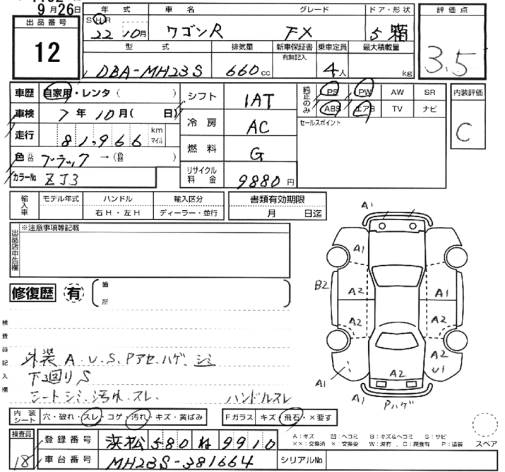 9月26日
出品番号
12
年式 車名 グレード ドア・形状
22年10月 ワゴンR FX 5 箱
型式 排気量 新車保証書 乗車定員 最大積載量
有無記入
DBA-MH23S 660cc 4人 kg
評価点
3.5
車歴 自家用・レンタ( )
車検 7年10月( 日)
走行 81,966 km マイル
色 ブラック →(色替 )
カラーNo ZJ3
シフト 1AT
冷房 AC
燃料 G
リサイクル料金 9880円
純正のみ
PS PW AW SR
ABS エアB TV ナビ
セールスポイント
内装評価
C
輸入車
モデル年式 ハンドル 輸入区分
右H・左H ディーラー・並行
書類有効期限
月 日迄
出品店申告欄
※注意事項等記載
修復歴 有
検査員記入欄
外装 A.U.S.Pアセ.ハゲ.シミ
下回りS
シートシミ.汚れ.スレ. ハンドルスレ
A1 A1 A1
B2 A2 A2 A1
A1 A2 A2
A2
Pハゲ
内装シート 穴・破れ・スレ・コゲ・汚れ・キズ・黄ばみ
Fガラス キズ・飛石・×要す
A:キズ U:ヘコミ B:キズ&ヘコミ S:サビ
スペア
検査員
181
登録番号 浜松 580 ね 9910
車台番号 MH23S-381664
シリアルNo